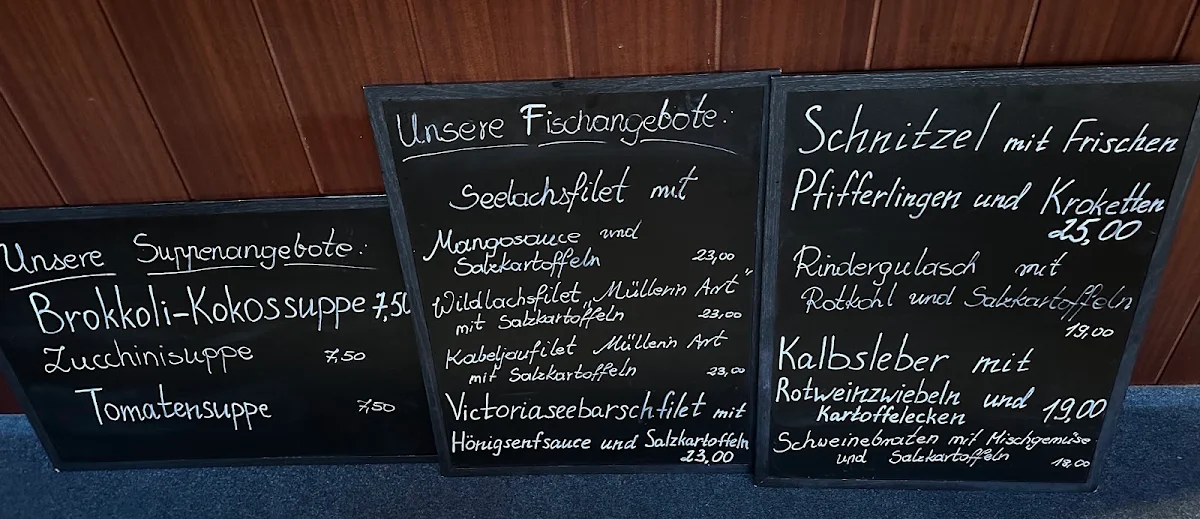 Unsere Suppenangebote:
Brokkoli-Kokossuppe 7,50
Zucchinisuppe 7,50
Tomatensuppe 7,50
Unsere Fischangebote:
Seelachsfilet mit
Mangosauce und
Salzkartoffeln 23,00
Wildlachsfilet „Müllerin Art"
mit Salzkartoffeln 23,00
Kabeljaufilet Müllerin Art
mit Salzkartoffeln 23,00
Victoriaseebarschfilet mit
Hönigsenfsauce und Salzkartoffeln
23,00
Schnitzel mit Frischen
Pfifferlingen und Kroketten
25,00
Rindergulasch mit
Rotkohl und Salzkartoffeln
19,00
Kalbsleber mit
Rotweinzwiebeln und
Kartoffelecken 19,00
Schweinebraten mit Mischgemüse
und Salzkartoffeln 18,00